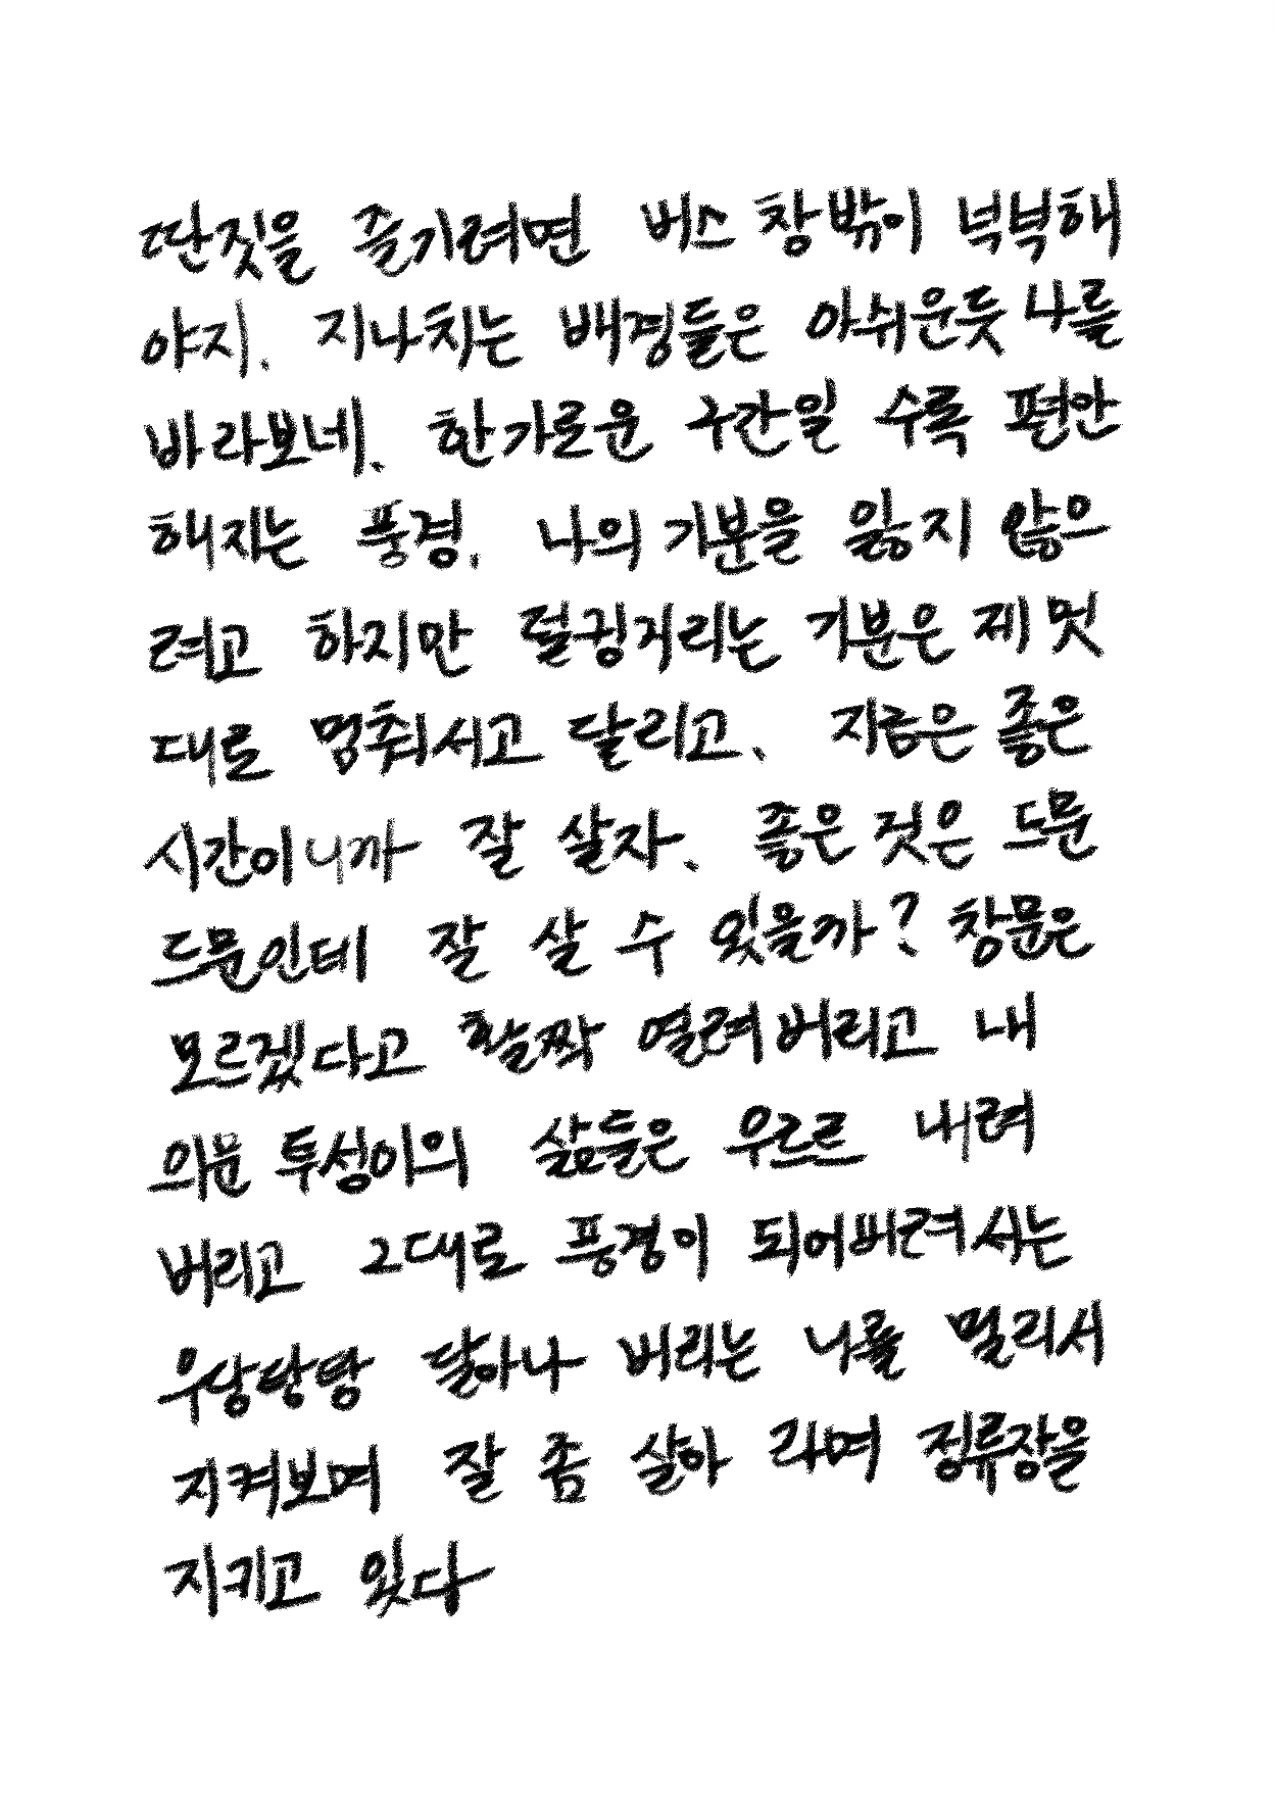 딴짓을 즐기려면 버스 창밖이 넉넉해
야지. 지나치는 배경들은 아쉬운듯 나를
바라보네. 한가로운 구간일 수록 편안
해지는 풍경. 나의 기분을 잃지 않으
려고 하지만 덜컹거리는 기분은 제 멋
대로 멈춰서고 달리고. 지금은 좋은
시간이니까 잘 살자. 좋은 것은 드문
드문인데 잘 살 수 있을까? 창문은
모르겠다고 활짝 열려버리고 내
의문 투성이의 삶들은 우르르 내려
버리고 그대로 풍경이 되어버려서는
우당탕탕 달아나 버리는 나를 멀리서
지켜보며 잘 좀 살아 라며 정류장을
지키고 있다